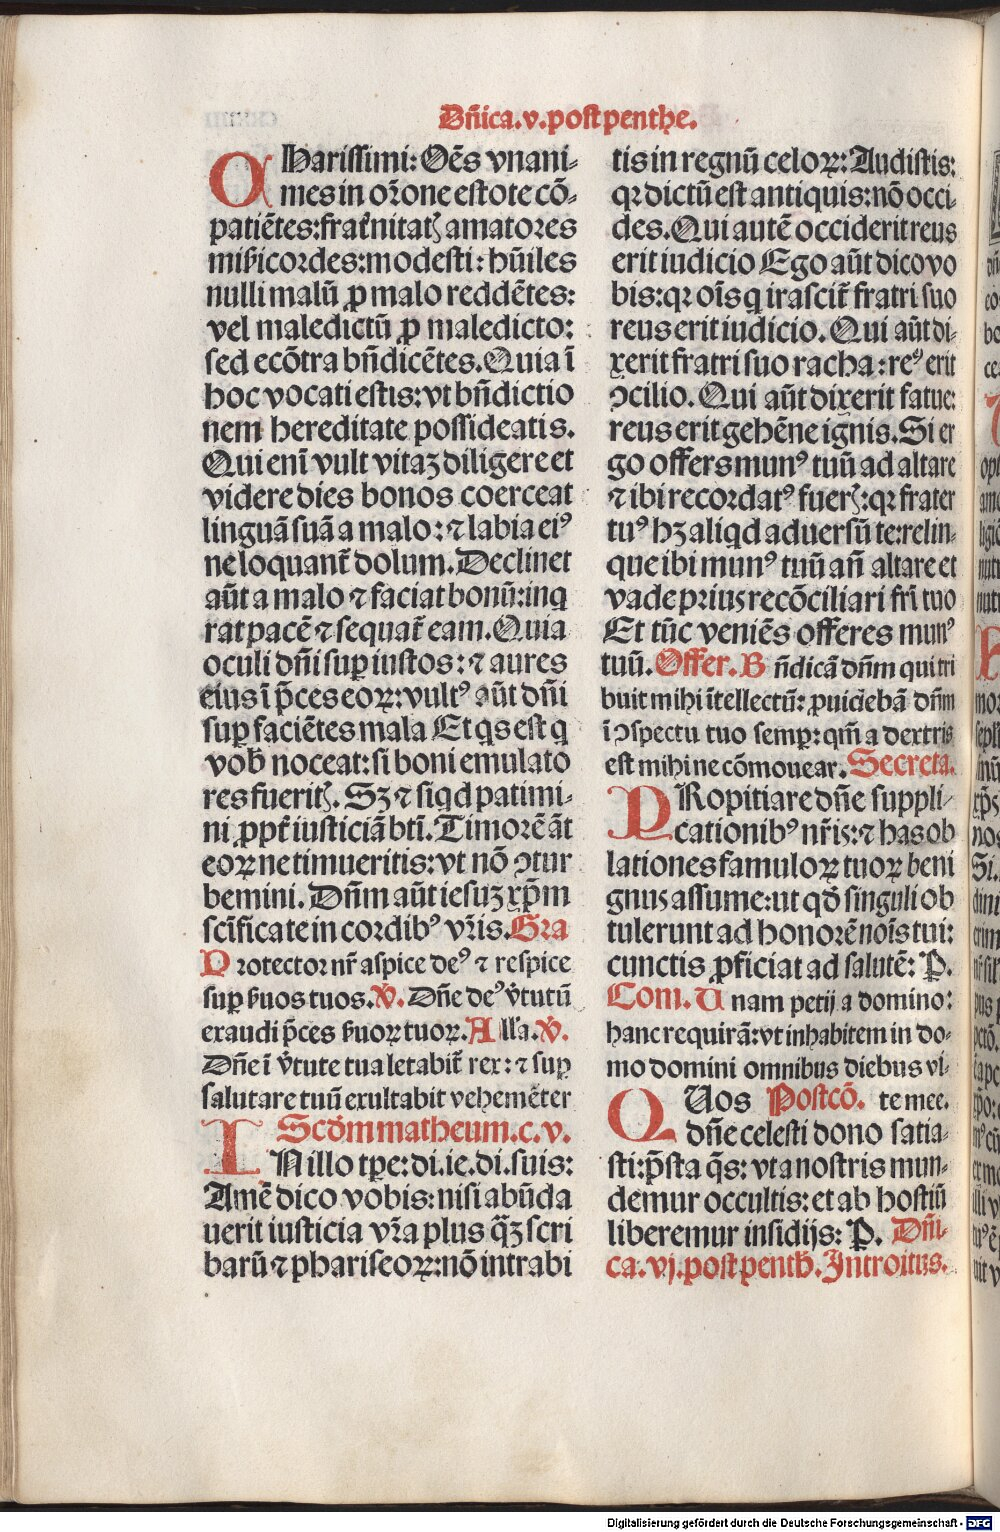 Dn̄ica.v.post penthe.
CHarissimi: Oēs vnani-
mes in or̄one estote cō-
patiētes: frat̄nitatꝭ amatores
mis̄icordes: modesti: hūiles
nulli malū ꝓ malo reddētes:
vel maledictū ꝓ maledicto:
sed ecōtra bn̄dicētes. Quia ī
hoc vocati estis: vt bn̄dictio
nem hereditate possideatis.
Qui enī vult vitaꝫ diligere et
videre dies bonos coerceat
linguā suā a malo: ⁊ labia eiꝰ
ne loquant̄ dolum. Declinet
aūt a malo ⁊ faciat bonū: inq
rat pacē ⁊ sequat̄ eam. Quia
oculi dn̄i suꝑ iustos: ⁊ aures
eius ī p̄ces eoꝝ: vultꝰ aūt dn̄i
suꝑ faciētes mala Et qs est q
vob̄ noceat: si boni emulato
res fueritꝭ. Sꝫ ⁊ siqd patimi-
ni ꝓpt̄ iusticiā bt̄i. Timorē āt
eoꝝ ne timueritis: vt nō ꝯtur
bemini. Dn̄m aūt iesuꝫ xp̄m
scīficate in cordibꝰ vr̄is. Gra
Protector nr̄ aspice deꝰ ⁊ respice
suꝑ s̄uos tuos. V̄. Dn̄e deꝰ v̄tutū
exaudi p̄ces s̄uoꝝ tuoꝝ. All'a. V̄.
Dn̄e ī v̄tute tua letabit̄ rex: ⁊ suꝑ
salutare tuū exultabit vehemēter
Scd̄m matheum.c.v.
IN illo tꝑe: di.ie.di.suis:
Amē dico vobis: nisi abūda
uerit iusticia vr̄a plus q̄ꝫ scri
barū ⁊ phariseoꝝ: nō intrabi
tis in regnū celoꝝ: Audistis:
qꝛ dictū est antiquis: nō occi-
des. Qui autē occiderit reus
erit iudicio Ego aūt dico vo
bis: qꝛ oīs q irascit̄ fratri suo
reus erit iudicio. Qui aūt di-
xerit fratri suo racha: reꝰ erit
ꝯcilio. Qui aūt dixerit fatue:
reus erit gehēne ignis. Si er
go offers munꝰ tuū ad altare
⁊ ibi recordatꝰ fuerꝭ: qꝛ frater
tuꝰ hꝫ aliqd aduersū te: relin-
que ibi munꝰ tuū an̄ altare et
vade prius recōciliari fr̄i tuo
Et tūc veniēs offeres munꝰ
tuū. Offer. Bn̄dicā dn̄m qui tri
buit mihi ītellectū: ꝓuidebā dn̄m
ī ꝯspectu tuo semꝑ: qm̄ a dextris
est mihi ne cōmouear. Secreta.
PRopitiare dn̄e suppli-
cationibꝰ nr̄is: ⁊ has ob
lationes famuloꝝ tuoꝝ beni
gnus assume: ut qd̄ singuli ob
tulerunt ad honorē noīs tui:
cunctis ꝓficiat ad salutē: P̱.
Com. Unam petij a domino:
hanc requirā: vt inhabitem in do-
mo domini omnibus diebus vi-
QUos Postcō. te mee.
dn̄e celesti dono satia-
sti: p̄sta q̄s: vt a nostris mun-
demur occultis: et ab hostiū
liberemur insidijs: P̱. Dn̄i-
ca.vj.post penth̄. Introitus.
Digitalisierung gefördert durch die Deutsche Forschungsgemeinschaft - DFG